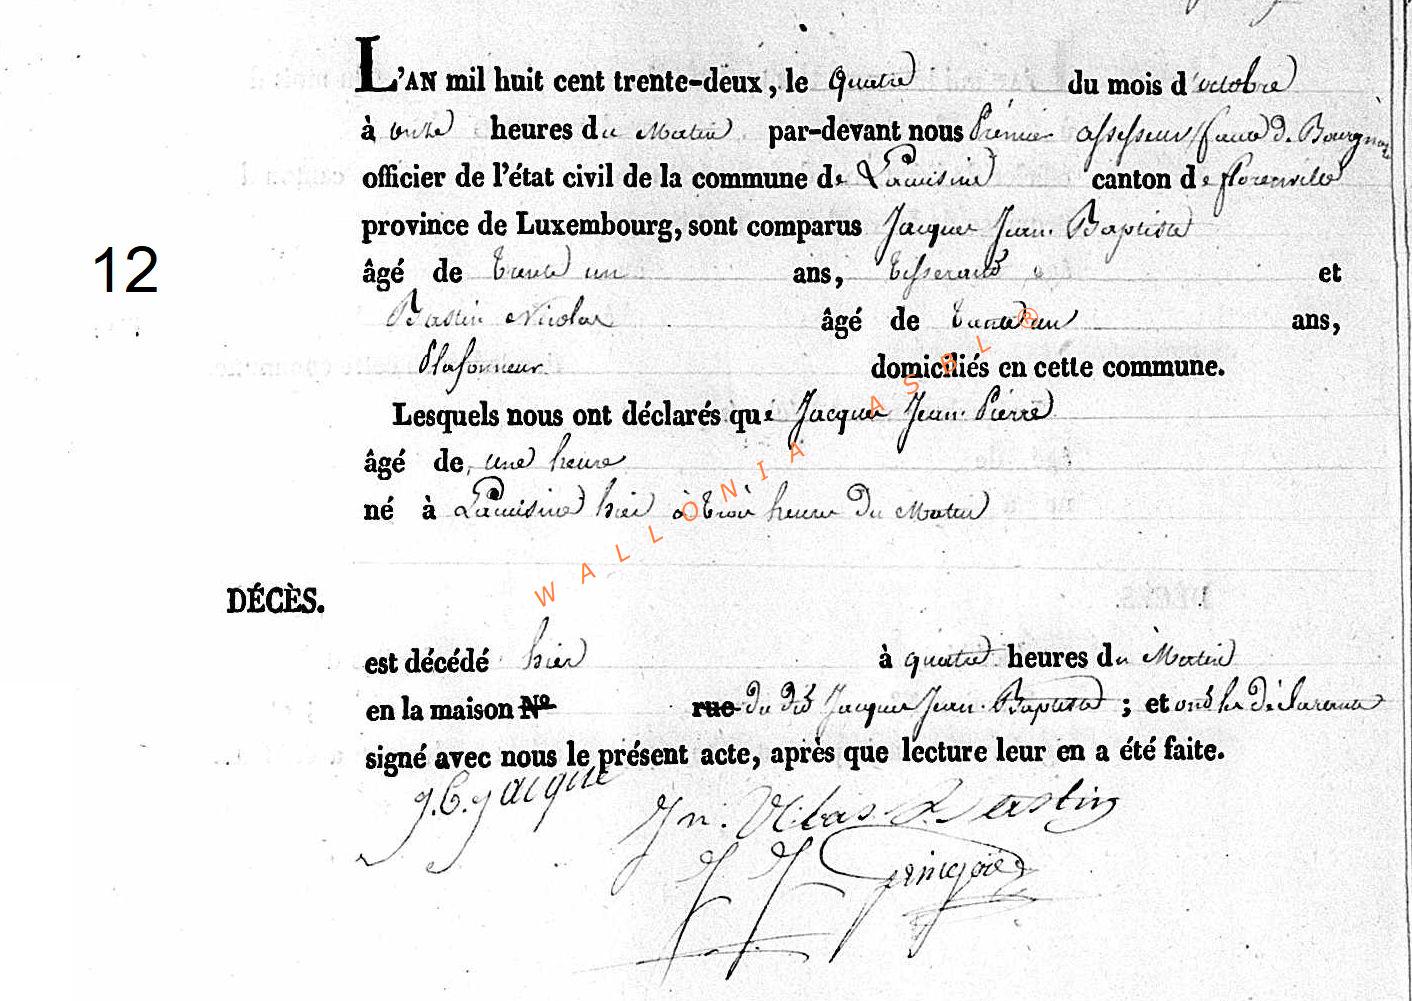 L'AN mil huit cent trente-deux, le quatre du mois d'octobre
à onze heures du Matin par-devant nous Prémier assesseur faute de Bourgm
officier de l'état civil de la commune de Lacuisine canton de florenville
province de Luxembourg, sont comparus Jacques Jean Baptiste
âgé de trente un ans, tisserand et
12
Bastin Nicolas âgé de trente un ans,
Plafonneur domiciliés en cette commune.
Lesquels nous ont déclarés que Jacques Jean Pierre
âgé de une heure
né à Lacuisine hier à trois heures du Matin
WALLONIA ASBL ®
DÉCÈS.
est décédé hier à quatre heures du Matin
en la maison N° rue du dit Jacques Jean Baptiste ; et ont les déclarants
signé avec nous le présent acte, après que lecture leur en a été faite.
J.B. Jacque
Jn. Bastin